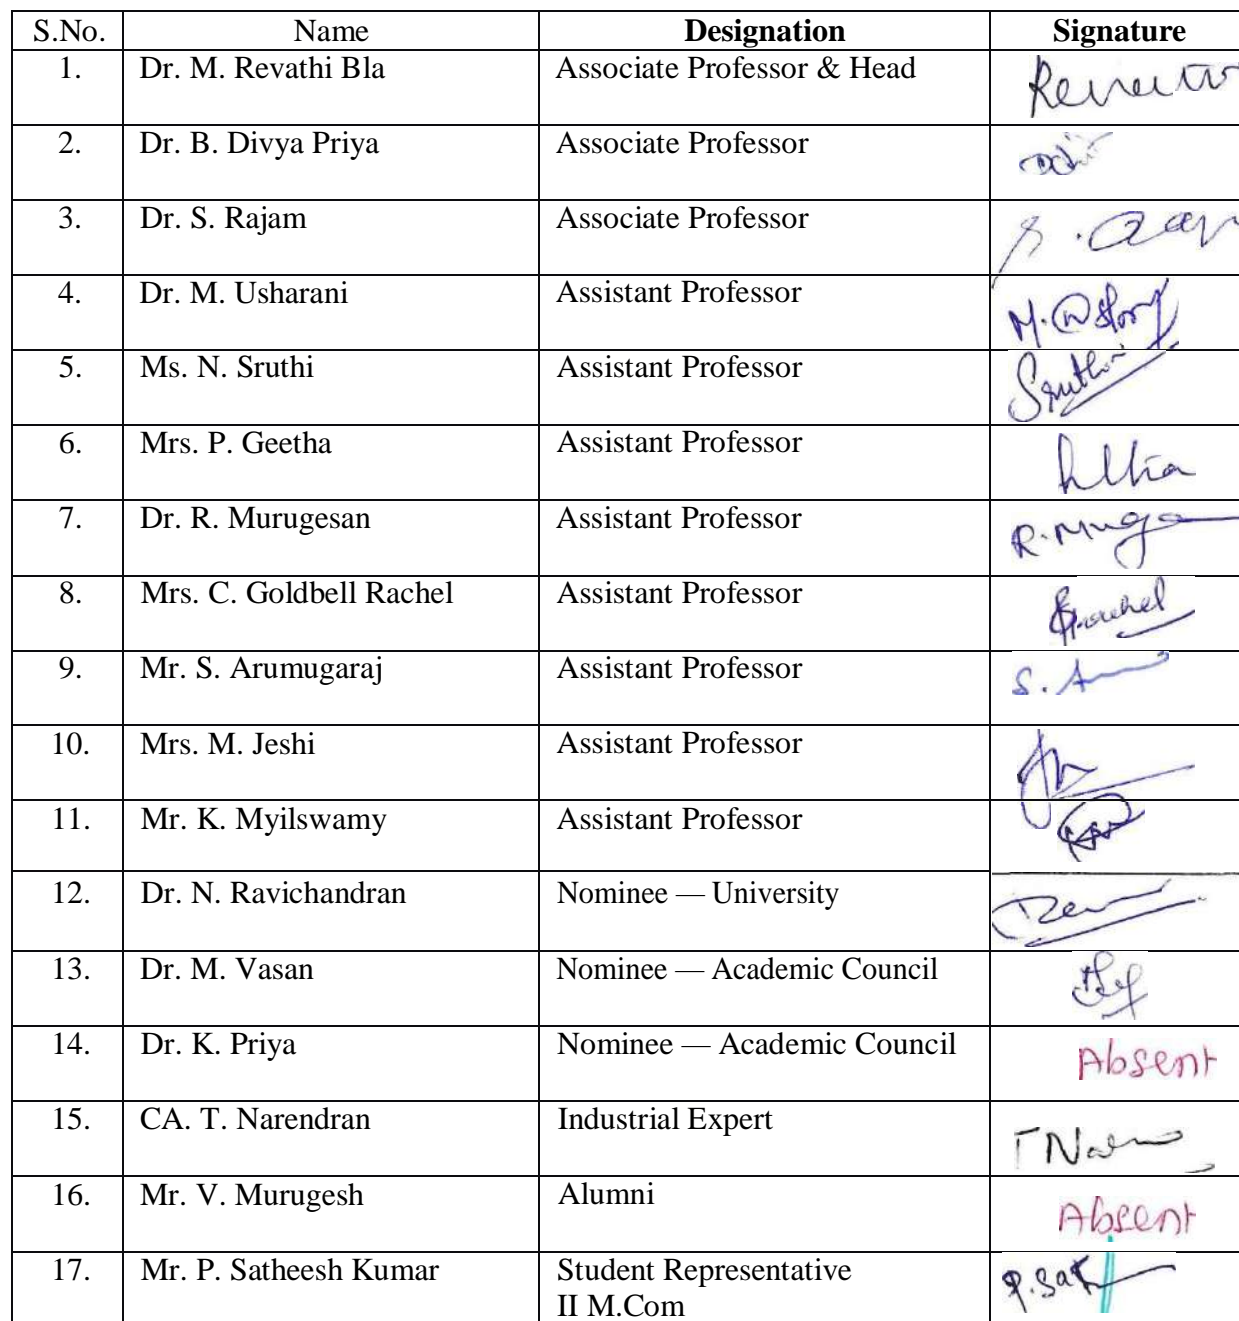 S.No. Name Designation Signature
1. Dr. M. Revathi Bla Associate Professor & Head
2. Dr. B. Divya Priya Associate Professor
3. Dr. S. Rajam Associate Professor
4. Dr. M. Usharani Assistant Professor
5. Ms. N. Sruthi Assistant Professor Sruthi
6. Mrs. P. Geetha Assistant Professor
7. Dr. R. Murugesan Assistant Professor
8. Mrs. C. Goldbell Rachel Assistant Professor
9. Mr. S. Arumugaraj Assistant Professor
10. Mrs. M. Jeshi Assistant Professor
11. Mr. K. Myilswamy Assistant Professor
12. Dr. N. Ravichandran Nominee — University
13. Dr. M. Vasan Nominee — Academic Council
14. Dr. K. Priya Nominee — Academic Council Absent
15. CA. T. Narendran Industrial Expert
16. Mr. V. Murugesh Alumni Absent
17. Mr. P. Satheesh Kumar Student Representative
II M.Com